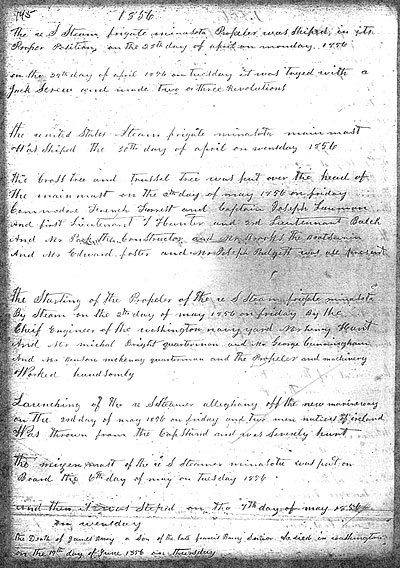 145 1856
the u S Steam frigate minasota Propeler was Shiped in its
Proper Position on the 28th day of april on monday. 1856
on the 29th day of april 1856 on tuesday it was tryed with a
Jack Screw and made two or three Revolutions
the united States Steam frigate minasota main mast
Was Shiped the 30th day of april on wensday 1856
the Cross tree and trussel tree was put over the head of
the main mast on the 2th day of may 1856 on friday
Commodore French Forrest and Captain Joseph Lanman
And first Lieutenant T Hunter and 3rd Lieutennant Balch
And Mr the Constructor and Mr the Boatswain
And Mr Edward foster and Mr Joseph Padgett was all present
the Starting of the Propeler of the u S Steam frigate minasota
By Steam on the 2th day of may 1856 on friday By the
Cheif Engineer of the washington navy yard Mr Henry Hunt
And Mr michal Bright quarterman and Mr George Cunningham
And Mr mckenay quarterman and the Propeler and machinery
Worked handsomly
Launching of the u Steamer alleghany off the new marineway
on the 2nd day of may 1856 on friday and two men natives of ireland
Was thrown from the Capstand and was Severely hurt
the mizen mast of the u S Steamer minasota was put on
Board the 6th day of may on Tuesday 1856
and then it was Steped on the 7th day of may 1856
on wensday
the Death of James Barry a Son of the late francis Barry he died in washington
on the 19th day of June 1856 on thursday